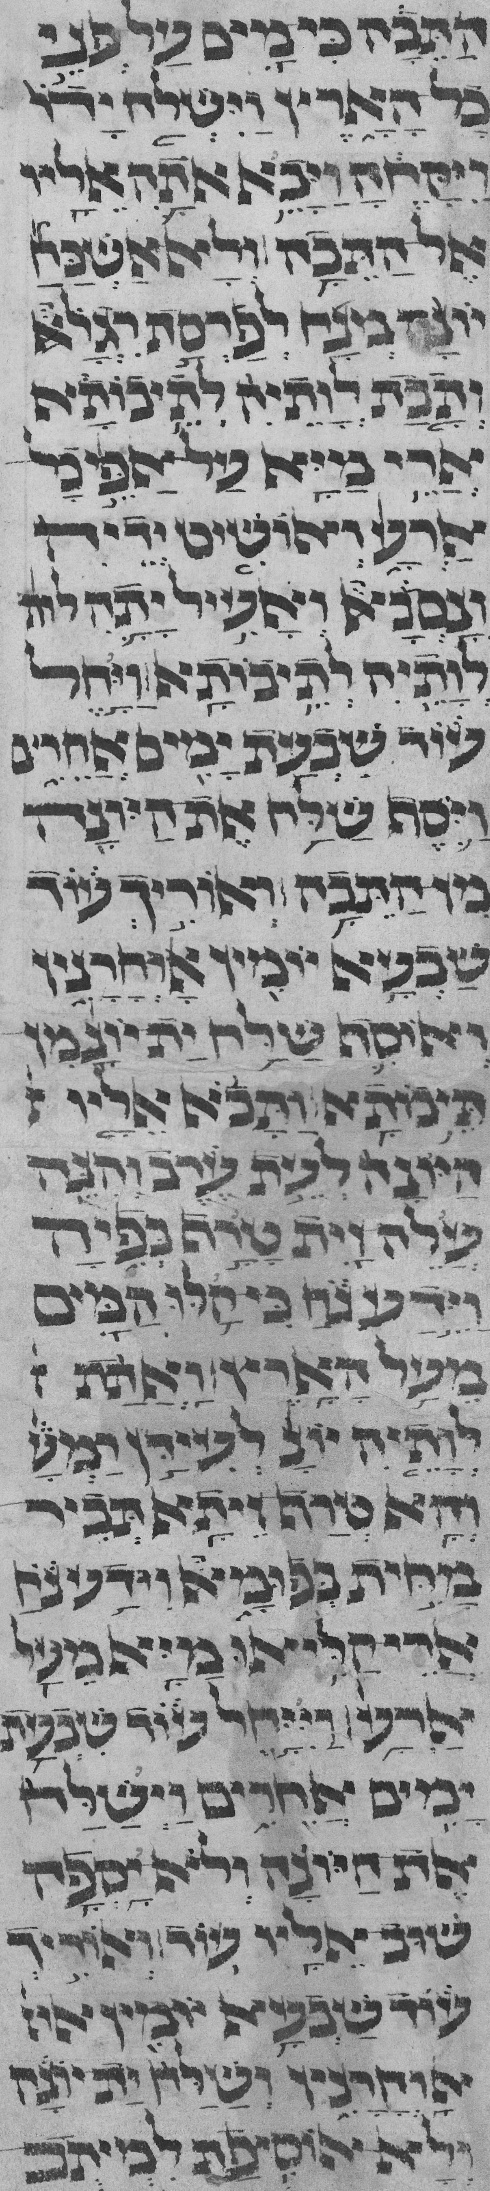 התבה כי מים על פני
כל הארץ וישלח ידו
ויקחה ויבא אתה אליו
אל התבה ולא אשכח
יונה מנח לפרסת רגלא
ותבת לותיה לתיבותא
ארי מיא על אפי כל
ארע ואושיט ידיה
ונסבא ואעיל יתה לוה
לותיה לתיבותא ויחל
עוד שבעת ימים אחרים
ויסף שלח את היונה
מן התבה ואוריך עוד
שבעא יומין אוחרנין
ואוסף שלח ית יונה מן
תיבותא ותבא אליו
היונה לעת ערב והנה
עלה זית טרף בפיה
וידע נח כי קלו המים
מעל הארץ ואתת
לותיה יונ לעידן רמש
והא טרף זיתא תביר
מחית בפומא וידע נח
ארי קליאו מיא מעל
ארעא וייחל עוד שבעת
ימים אחרים וישלח
את היונה ולא יספה
שוב אליו עוד ואוריך
עוד שבעא יומין או
אוחרנין ושלח ית יונה
ולא אוסיפת למיתב